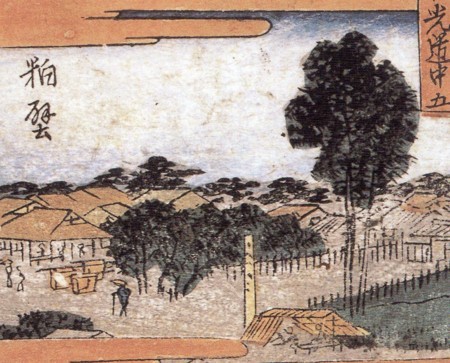 光道中五
粕壁